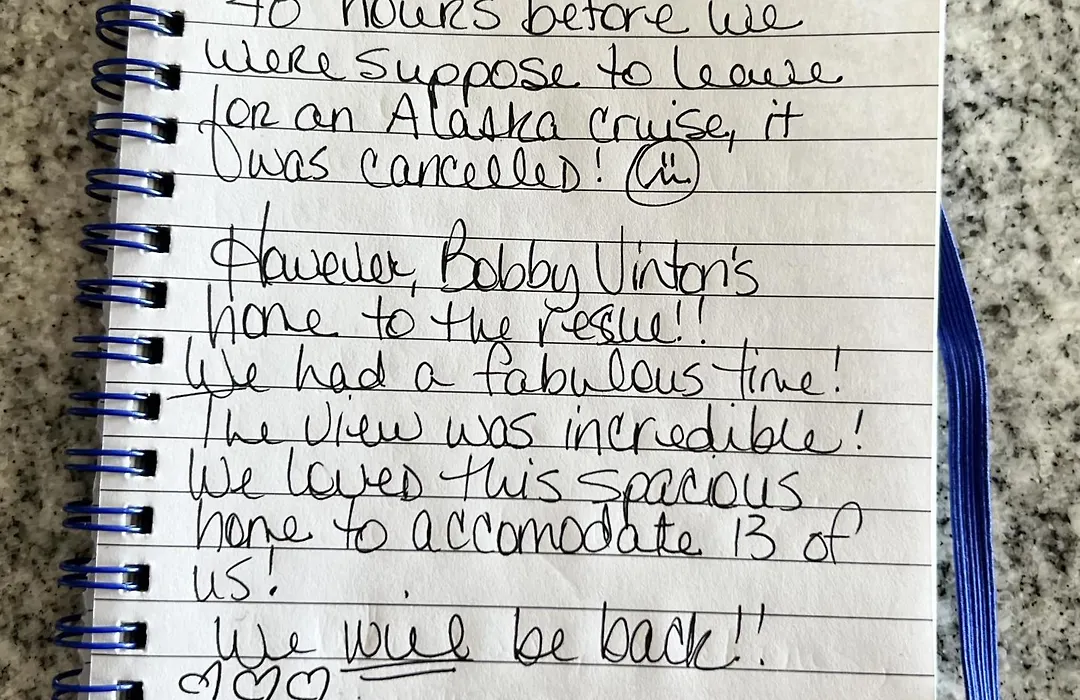 hours before we
were suppose to leave
for an Alaska cruise, it
was cancelled!
However, Bobby Vinton's
home to the resue!!
We had a fabulous time!
The view was incredible!
We loved this spacious
home to accomodate 13 of
us!
We will be back!!